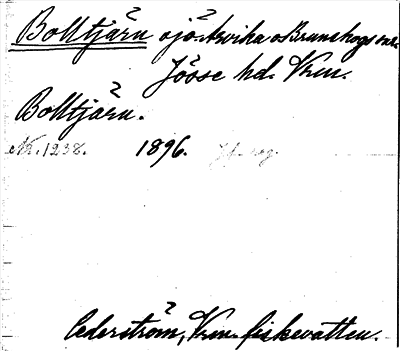 Bolltjärn sjö Arvika o Brunskogs snr.
Jösse hd. Vrml.
Bolltjärn.
Nr. 1238. 1896.
Cederström, Vrml. fiskevatten.